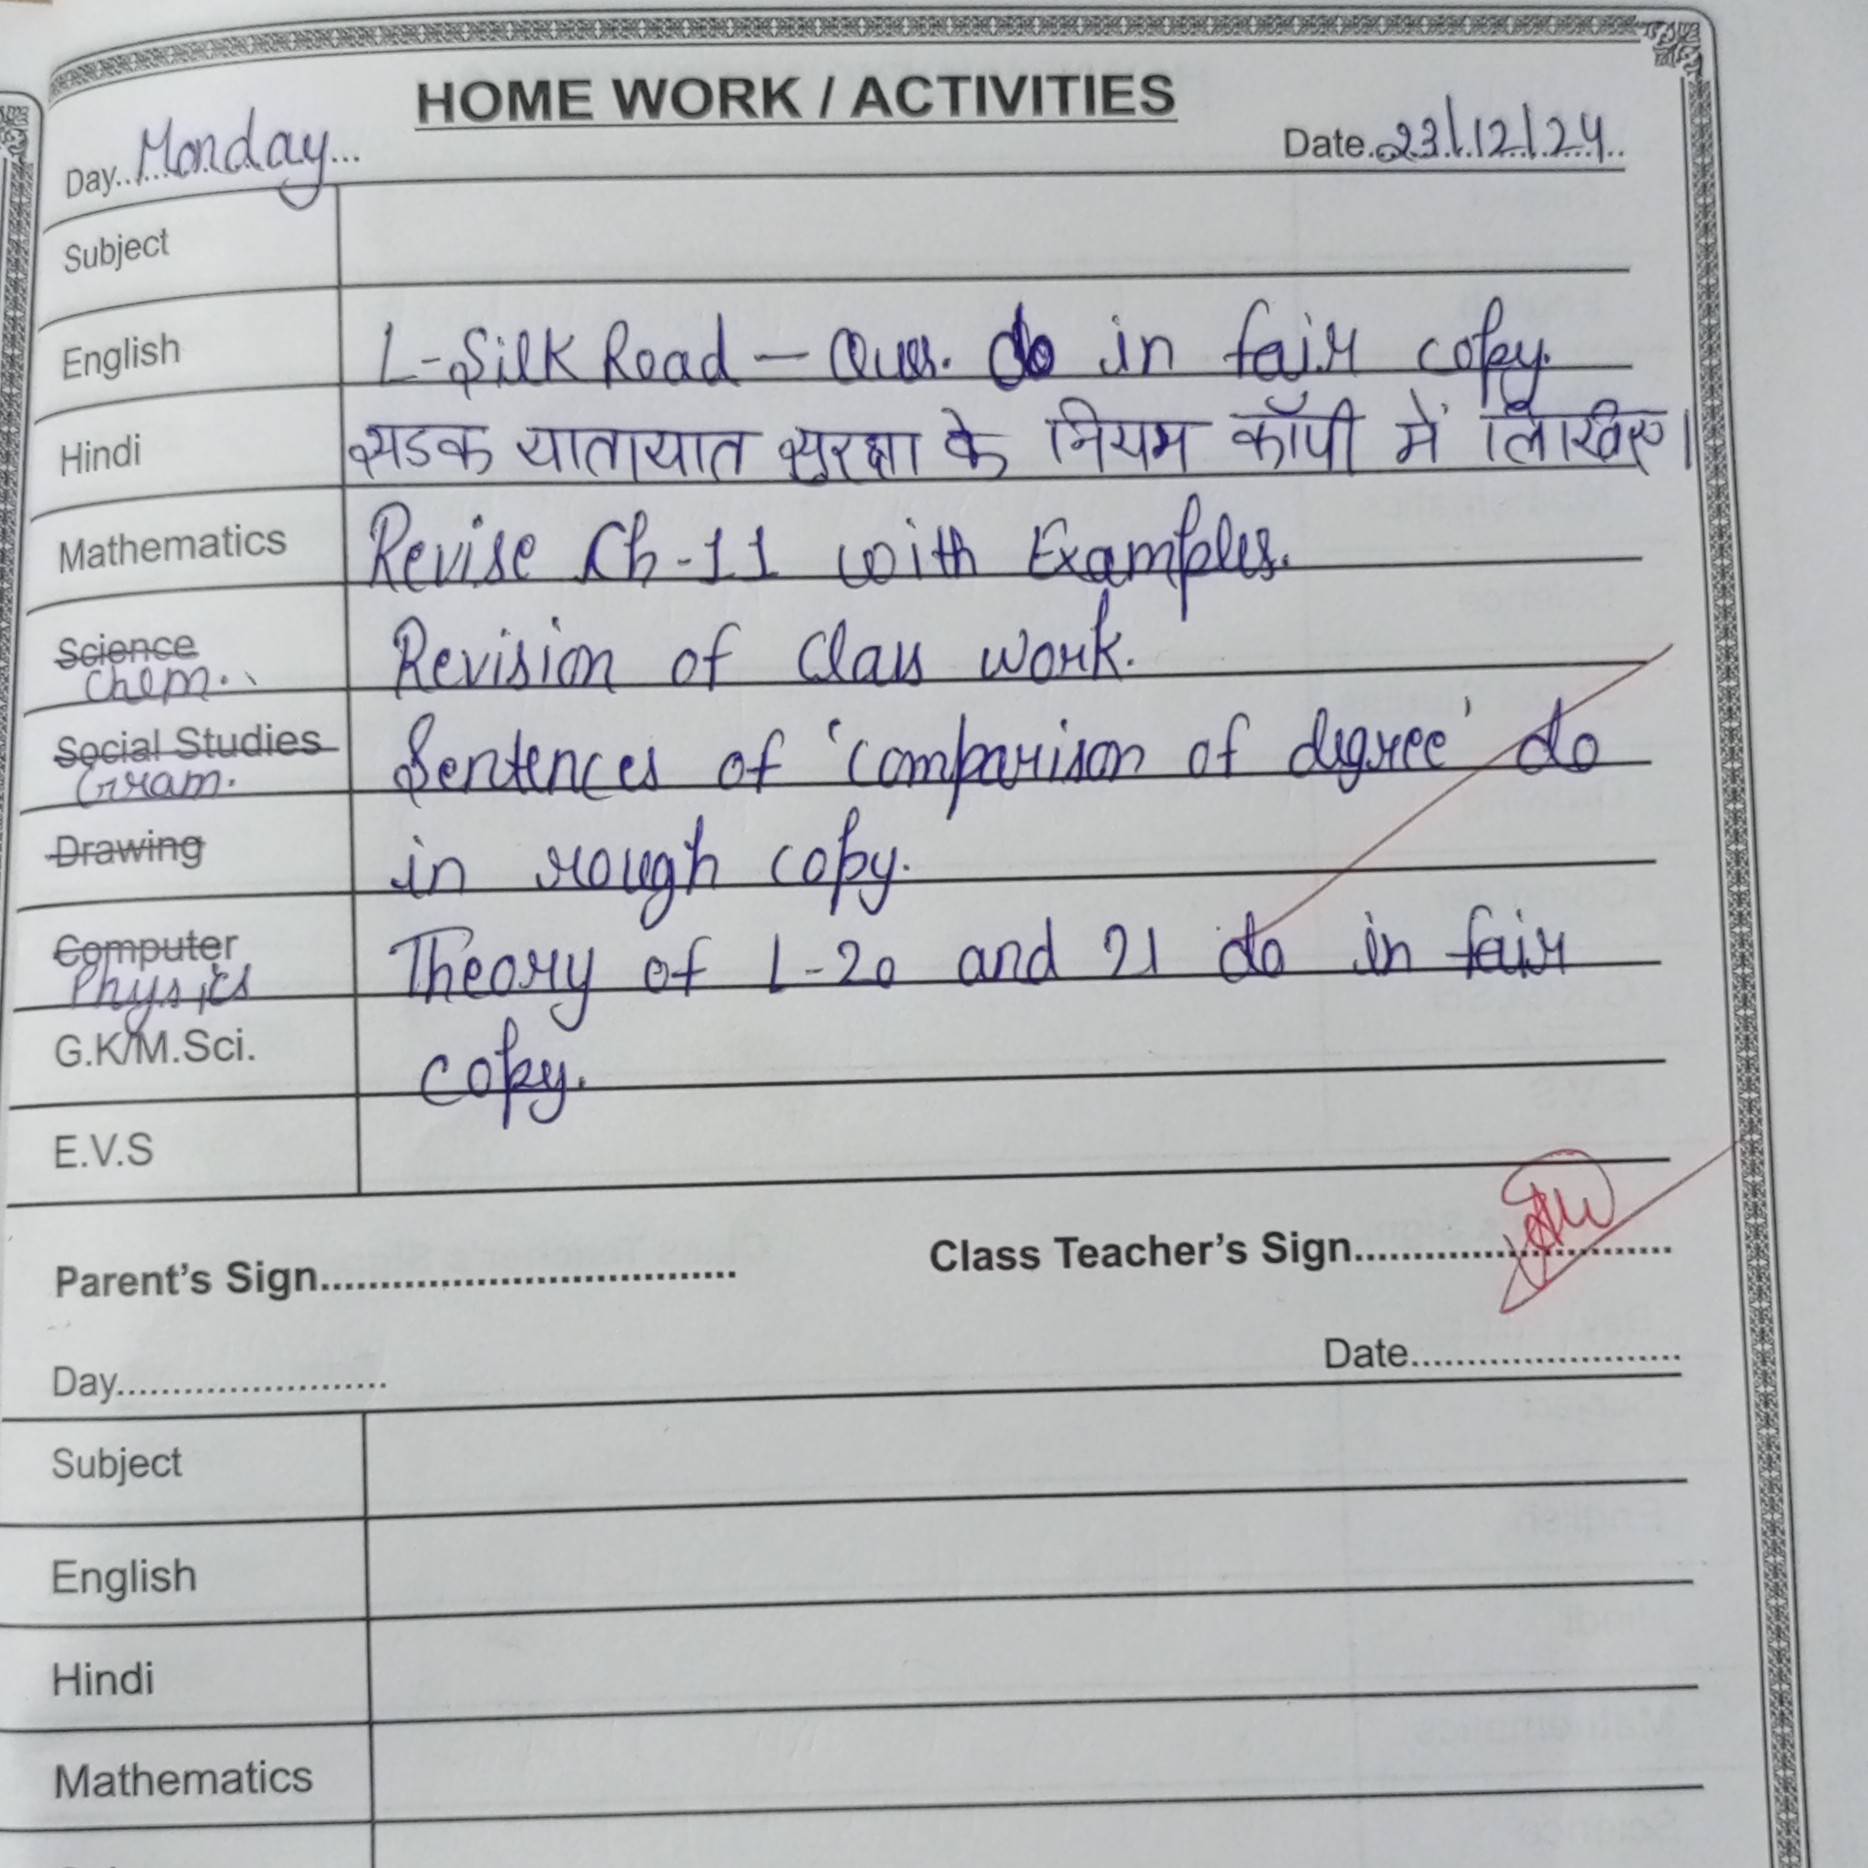 HOME WORK / ACTIVITIES
Day...Monday... Date.23/12/24..
Subject
English L-Silk Road – Ques. do in fair copy.
Hindi सडक यातायात सुरक्षा के नियम कॉपी में लिखिए।
Mathematics Revise Ch-11 with Examples.
Science
Chem. Revision of Class work.
Social Studies
Gram. Sentences of 'comparison of degree' do
Drawing in rough copy.
Computer
Physics Theory of L-20 and 21 do in fair
G.K/M.Sci. copy.
E.V.S
Parent's Sign.................................... Class Teacher's Sign..............................
Day........................ Date........................
Subject
English
Hindi
Mathematics